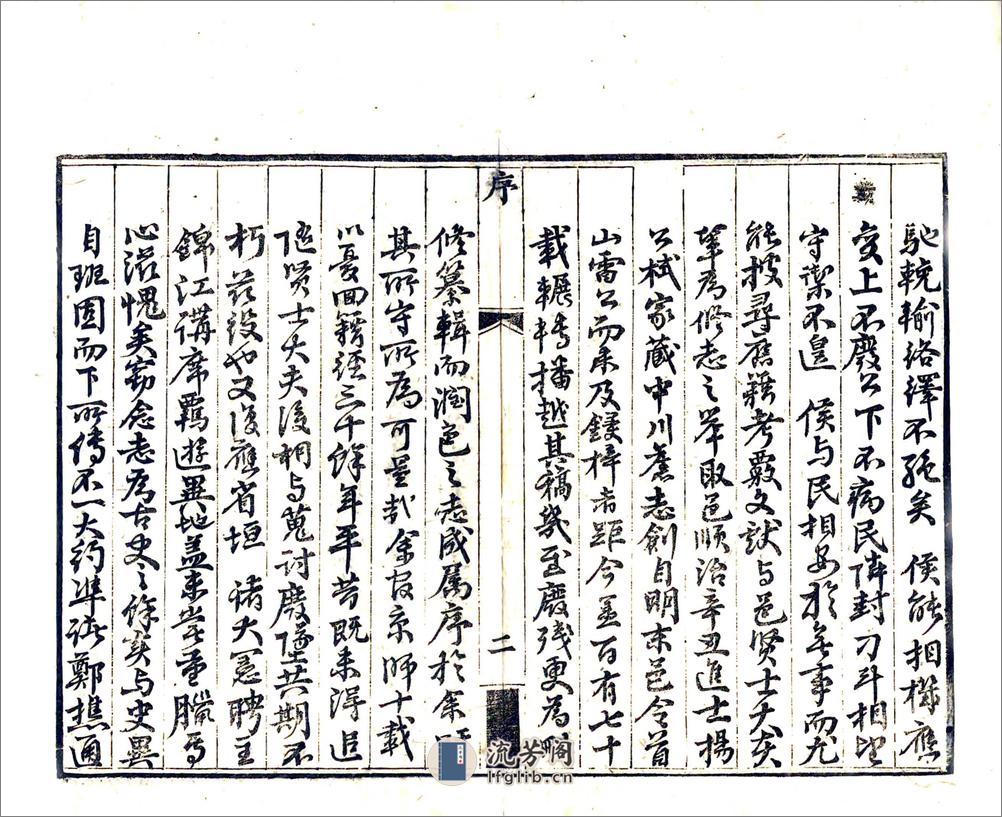 馳輓輸絡繹不絕矣　侯能相機應
變上不廢公下不病民隣封刁斗相望
守禦不遑　侯与民相安於無事而尤
能搜尋舊籍考覈文献与邑贤士大夫
舉為修志之举取邑順治辛丑進士楊
公栻家蔵中川舊志創自明末邑令首
山雷公而未及鋟梓者距今盖百有七十
載輾轉播越其稿幾至廢残更為
序
二
修纂輯而潤色之志成属序於余
其所守所為可量哉余官京師十載
以憂回籍經三千餘年平昔既未得追
随贤士大夫後相与蒐讨廢墜共期不
朽茲設也又復應省垣　诸大憲聘主
錦江講席羈遊異地盖未嘗量臘焉
心滋愧矣窃念志為古史之餘実与史異
自班固而下所傳不一大約準诸鄭樵通
流芳阁
lfglib.cn